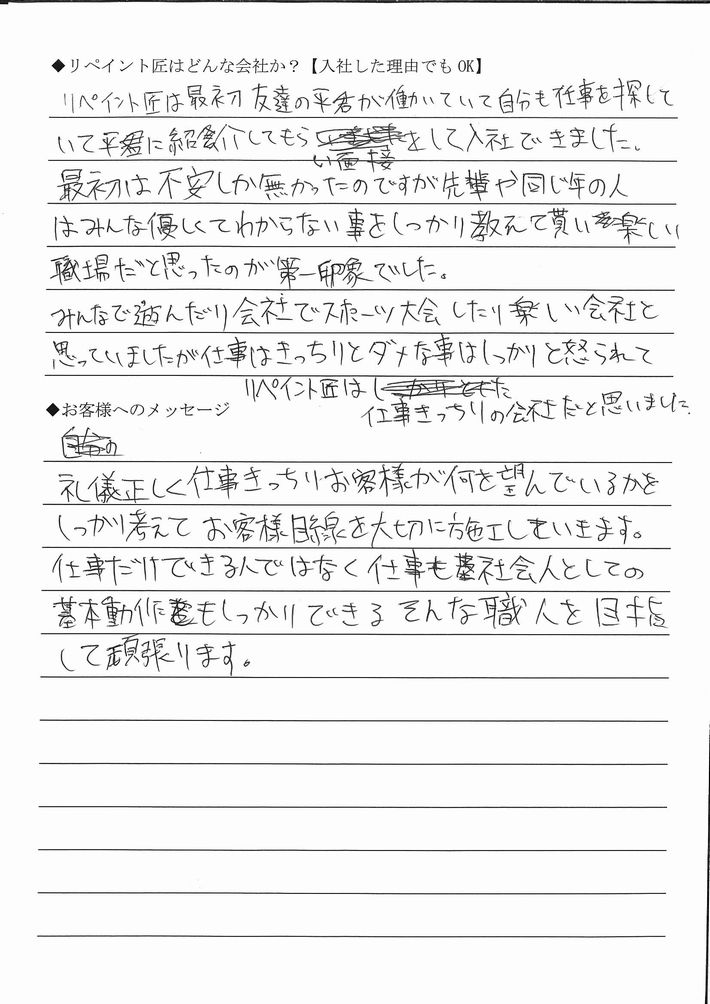 ◆リペイント匠はどんな会社か？【入社した理由でもOK】
リペイント匠は最初友達の平君が働いていて自分も仕事を探して
いて平君に紹介してもらい面接をして入社できました。
最初は不安しか無かったのですが先輩や同じ年の人
はみんな優しくてわからない事をしっかり教えて貰い楽しい
職場だと思ったのが第一印象でした。
みんなで遊んだり会社でスポーツ大会したり楽しい会社と
思っていましたが仕事はきっちりとダメな事はしっかりと怒られて
リペイント匠は
仕事きっちりの会社だと思いました
◆お客様へのメッセージ
礼儀正しく仕事きっちりお客様が何を望んでいるかを
しっかり考えてお客様目線を大切に施工しをいきます。
仕事だけできる人ではなく仕事も社会人としての
基本動作もしっかりできるそんな職人を目指
して頑張ります。